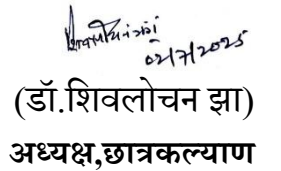 02/7/2025
(डॉ.शिवलोचन झा)
अध्यक्ष,छात्रकल्याण